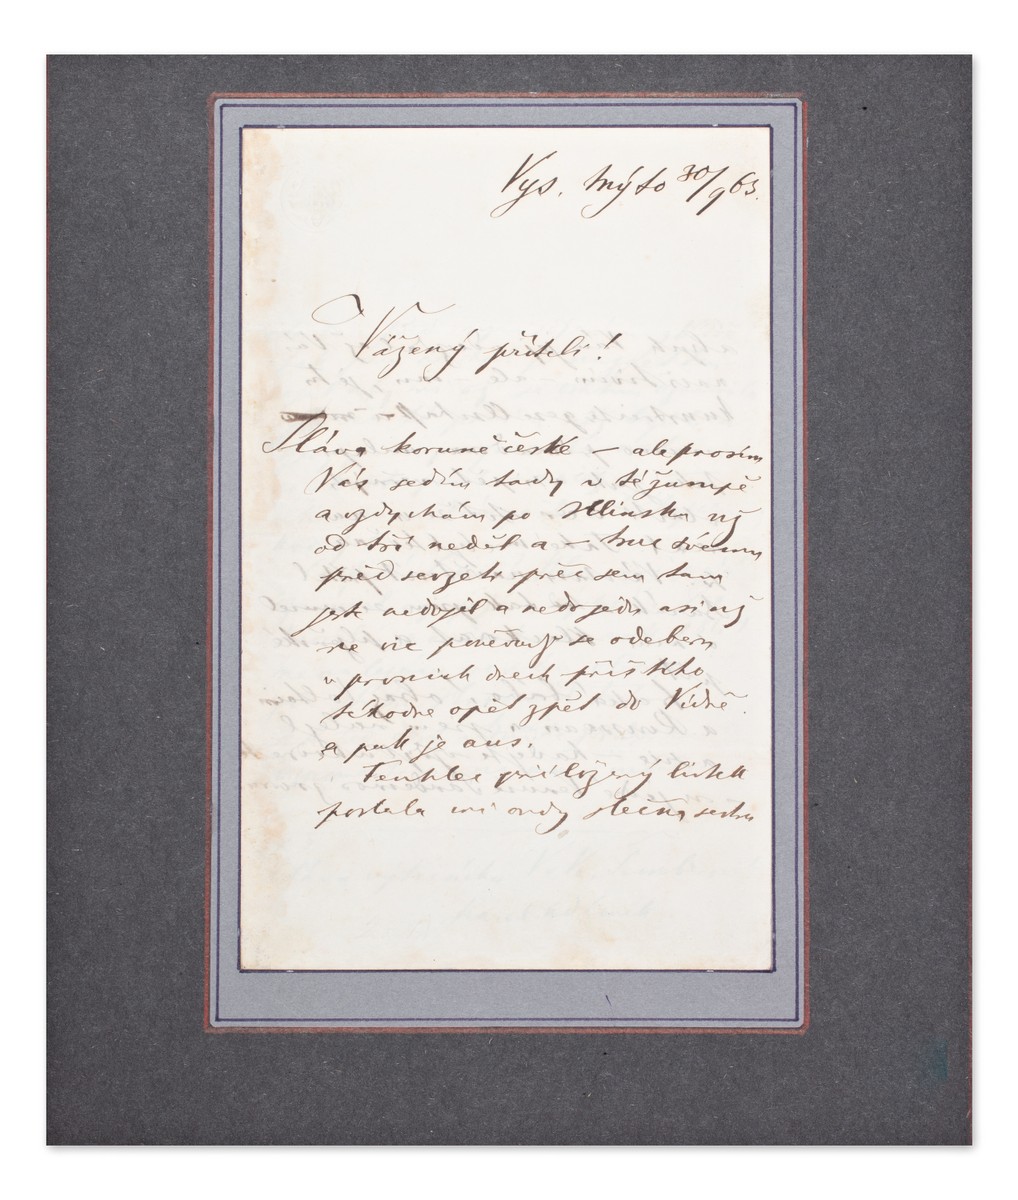 Vys. Mýto 30/9 63.
Vážený příteli!
Sláva koruně české – ale prosím
Vás sedím tady v té žumpě
a vzdychám po Hlinsku už
od tří neděl a – svému
předsevzetí přec sem tam
ješt nedojel a nedojedu asi už
ne víc poněvadž se odeberu
v prvních dnech příštího
téhodne opět zpět do Vídně.
a pak je aus.
Tenhle přiložený lístek
poslala mi ondy slečna sestra